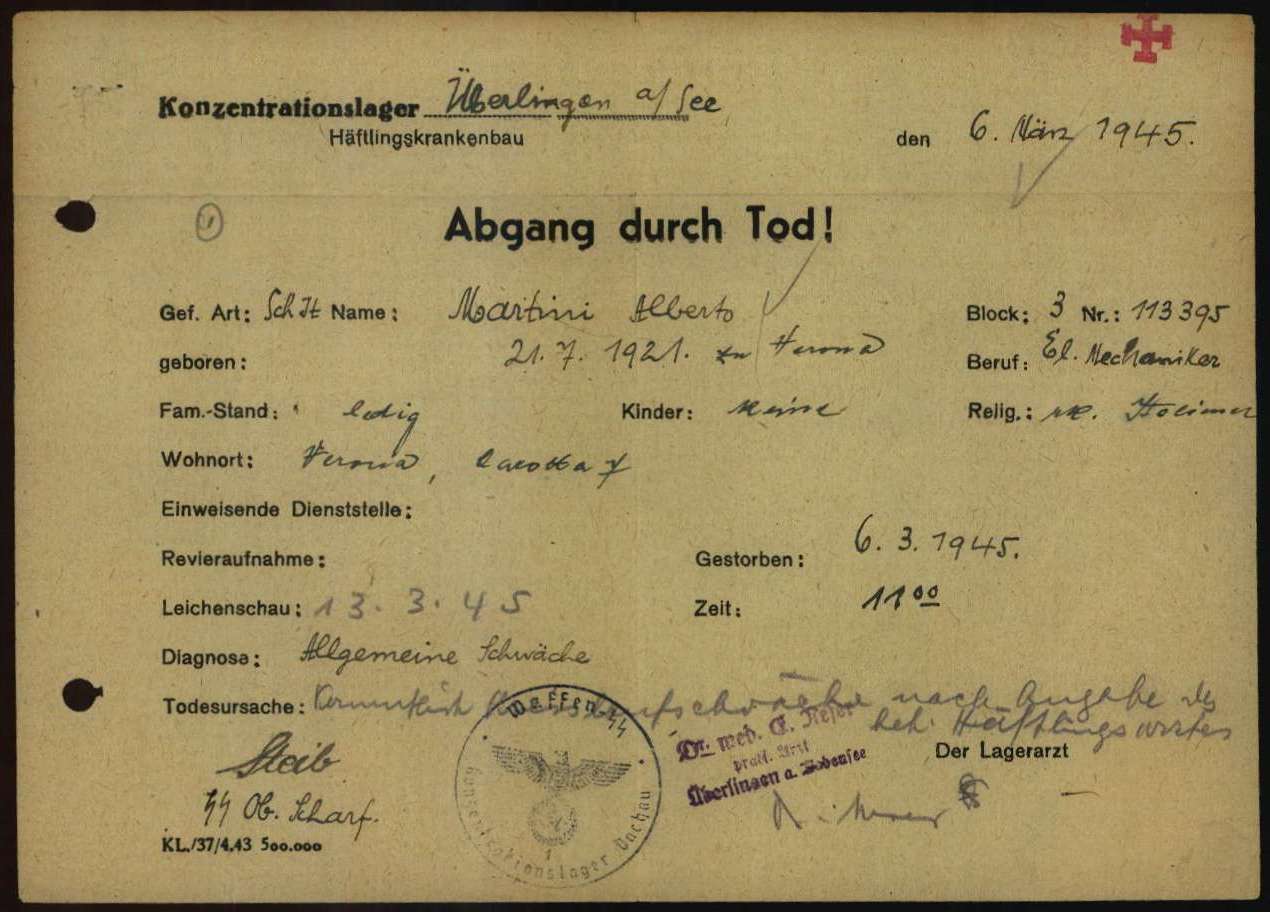 Konzentrationslager Überlingen a/See
Häftlingskrankenbau
den 6. März 1945.
Abgang durch Tod!
Gef. Art: Sch It Name: Martini Alberto Block: 3 Nr.: 113395
geboren: 21. 7. 1921. zu Verona Beruf: El. Mechaniker
Fam.-Stand: ledig Kinder: keine Relig.: rk. Italiener
Wohnort: Verona,
Einweisende Dienststelle:
Revieraufnahme: Gestorben: 6. 3. 1945.
Leichenschau: 13. 3. 45 Zeit: 11 00
Diagnose: Allgemeine Schwäche
Todesursache: Kreislaufschwäche nach Angabe des
beh. Häftlingsarztes
Dr. med. E.
prakt. Arzt
Überlingen a. Bodensee
Der Lagerarzt
Steib
SS Ob. Scharf.
Waffen-SS
Konzentrationslager Dachau
1
KL./37/4.43 500.000